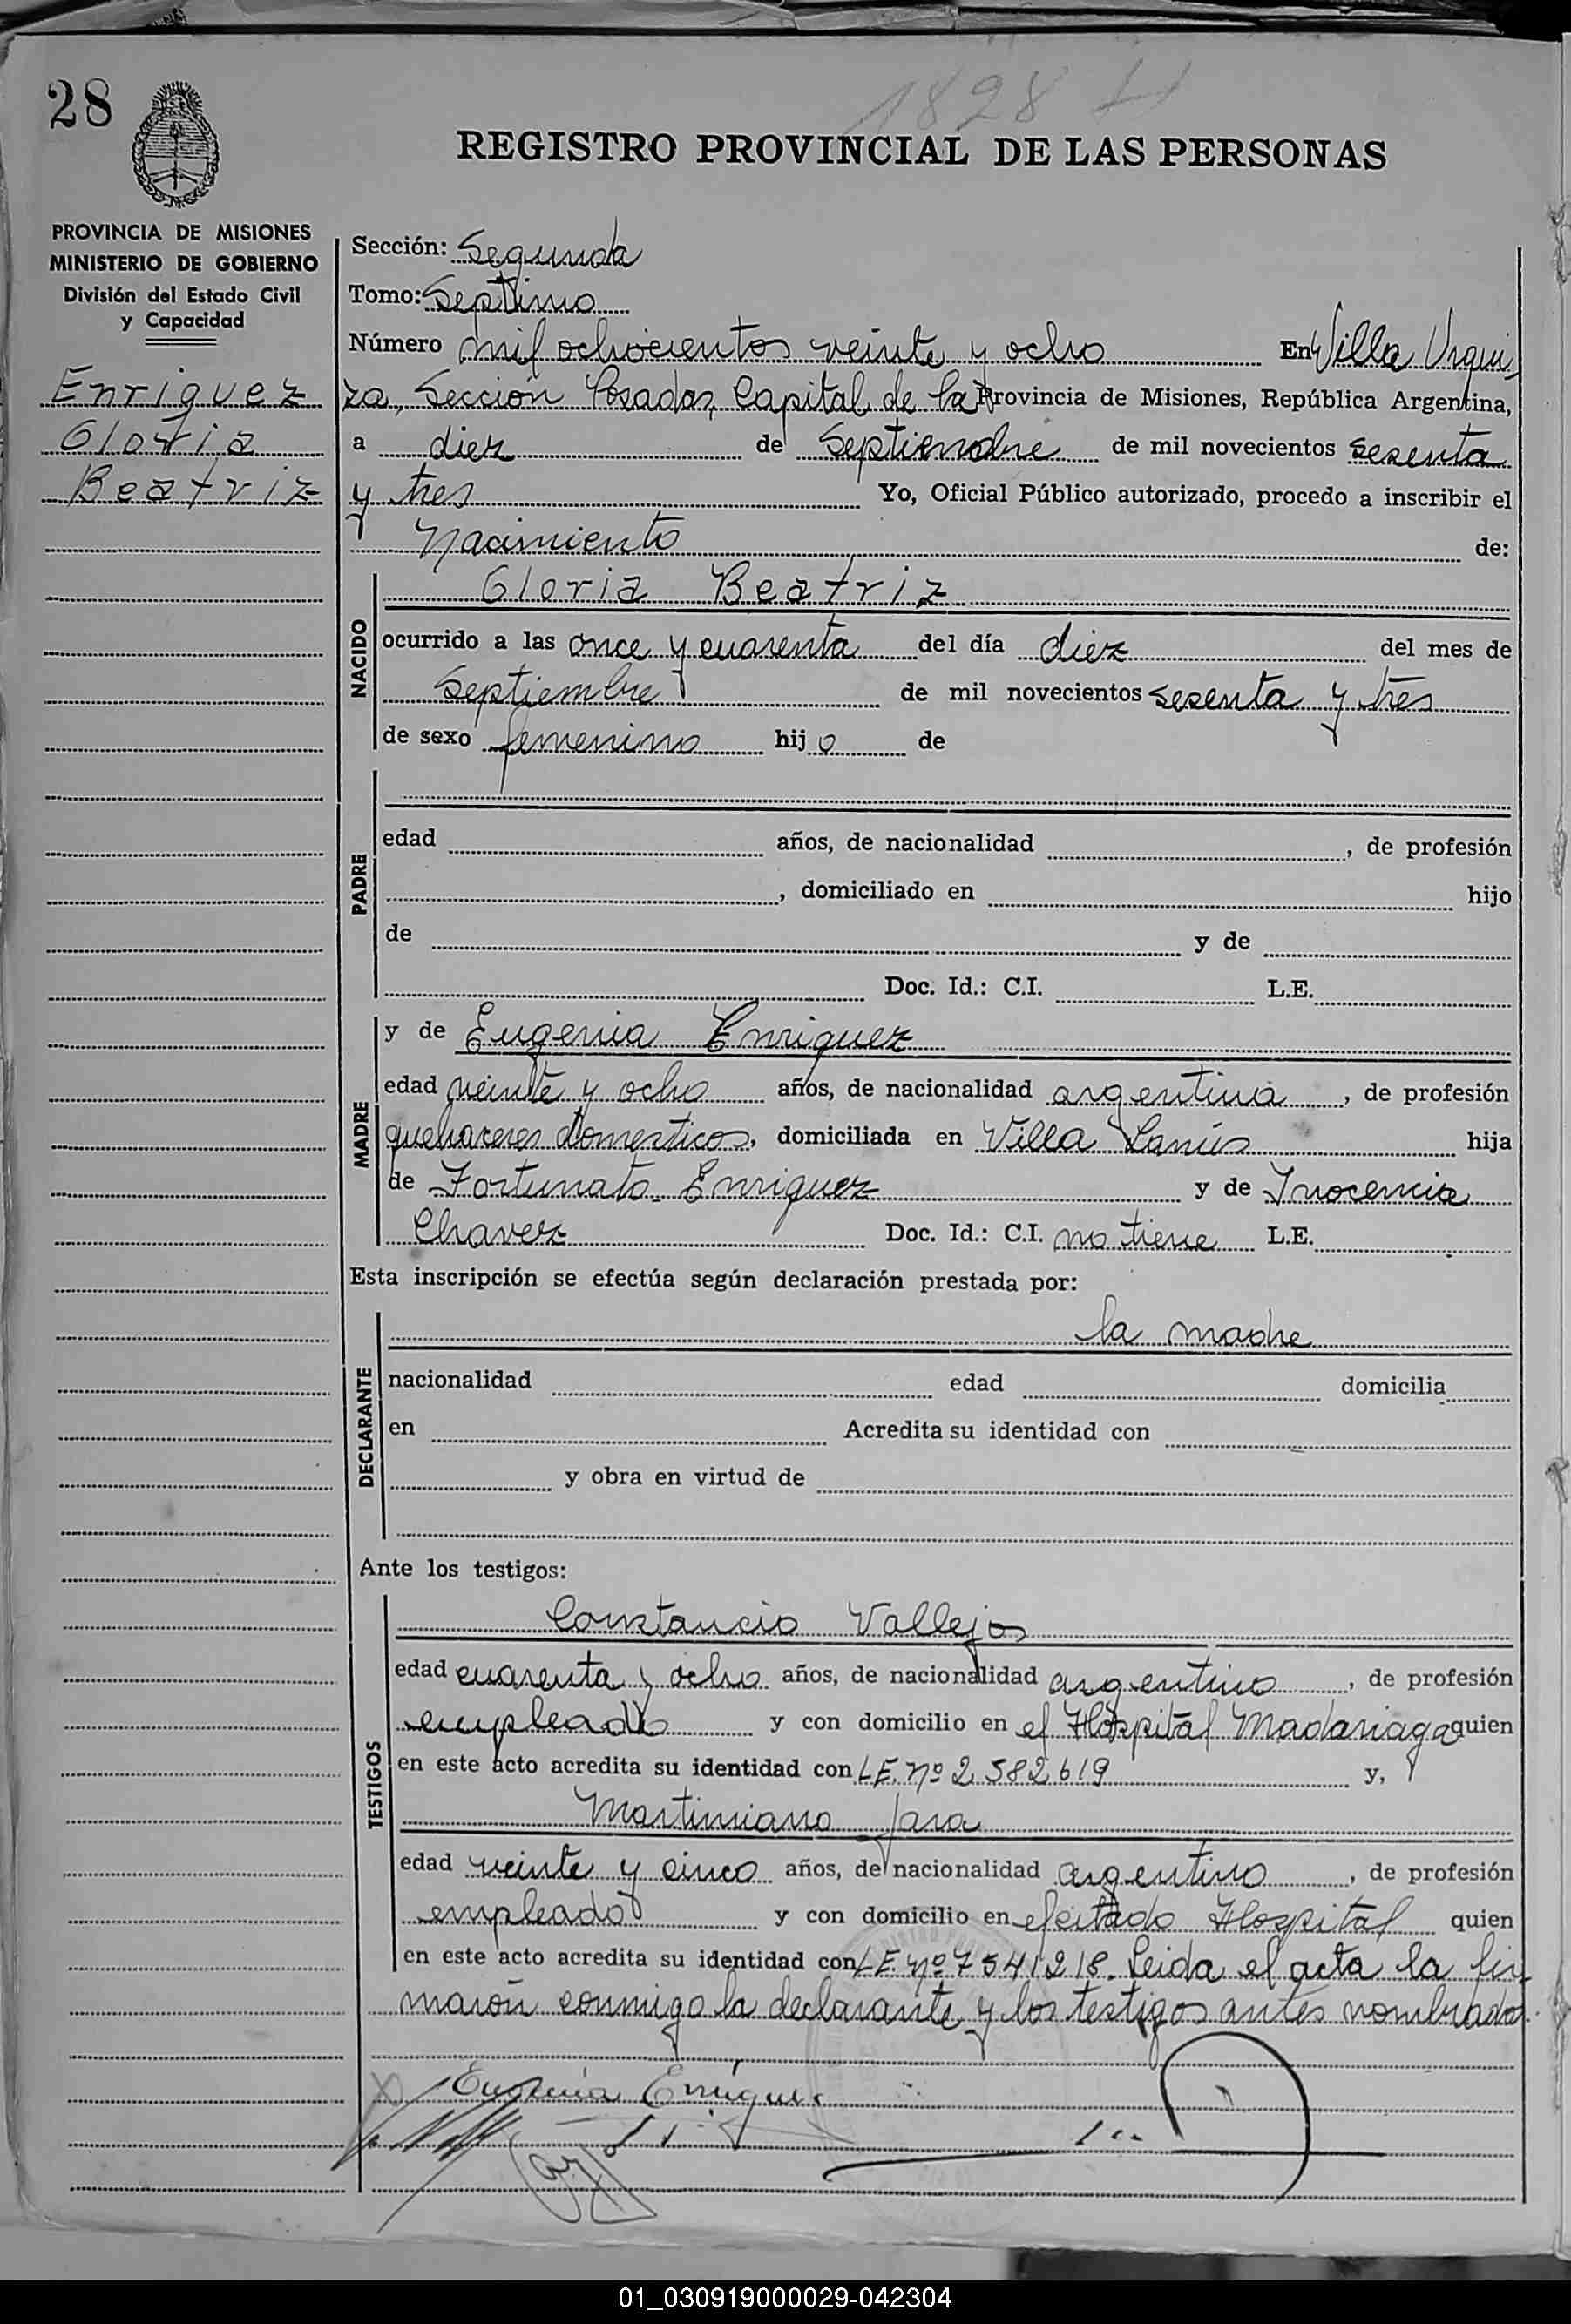 28
1828 H
REGISTRO PROVINCIAL DE LAS PERSONAS
PROVINCIA DE MISIONES
MINISTERIO DE GOBIERNO
División del Estado Civil
y Capacidad
Enriguez
Gloria
Beatriz
Sección: Segunda
Tomo: Septimo
Número mil ochocientos veinte y ocho En Villa Urqui-
za, Sección Posadas, Capital de la Provincia de Misiones, República Argentina,
a diez de Septiembre de mil novecientos sesenta
y tres Yo, Oficial Público autorizado, procedo a inscribir el
Nacimiento de:
NACIDO
Gloria Beatriz
ocurrido a las once y cuarenta del día diez del mes de
Septiembre de mil novecientos sesenta y tres
de sexo femenino hijo de
PADRE
edad años, de nacionalidad , de profesión
, domiciliado en hijo
de y de
Doc. Id.: C.I. L.E.
MADRE
y de Eugenia Enriquez
edad veinte y ocho años, de nacionalidad argentina, de profesión
quehaceres domesticos, domiciliada en Villa Lanús hija
de Fortunato Enriquez y de Inocencia
Chavez Doc. Id.: C.I. no tiene L.E.
Esta inscripción se efectúa según declaración prestada por:
DECLARANTE
la madre
nacionalidad edad domicilia
en Acredita su identidad con
y obra en virtud de
Ante los testigos:
TESTIGOS
Constancio Vallejos
edad cuarenta y ocho años, de nacionalidad argentino, de profesión
empleado y con domicilio en el Hospital Madariaga quien
en este acto acredita su identidad con L.E. nº 2.582.619 y,
Martiniano Jara
edad veinte y cinco años, de nacionalidad argentino, de profesión
empleado y con domicilio en el citado Hospital quien
en este acto acredita su identidad con L.E. nº 7541218. Leida el acta la fir-
maron conmigo la declarante y los testigos antes nombrados.
Eugenia Enriquez
01_030919000029-042304